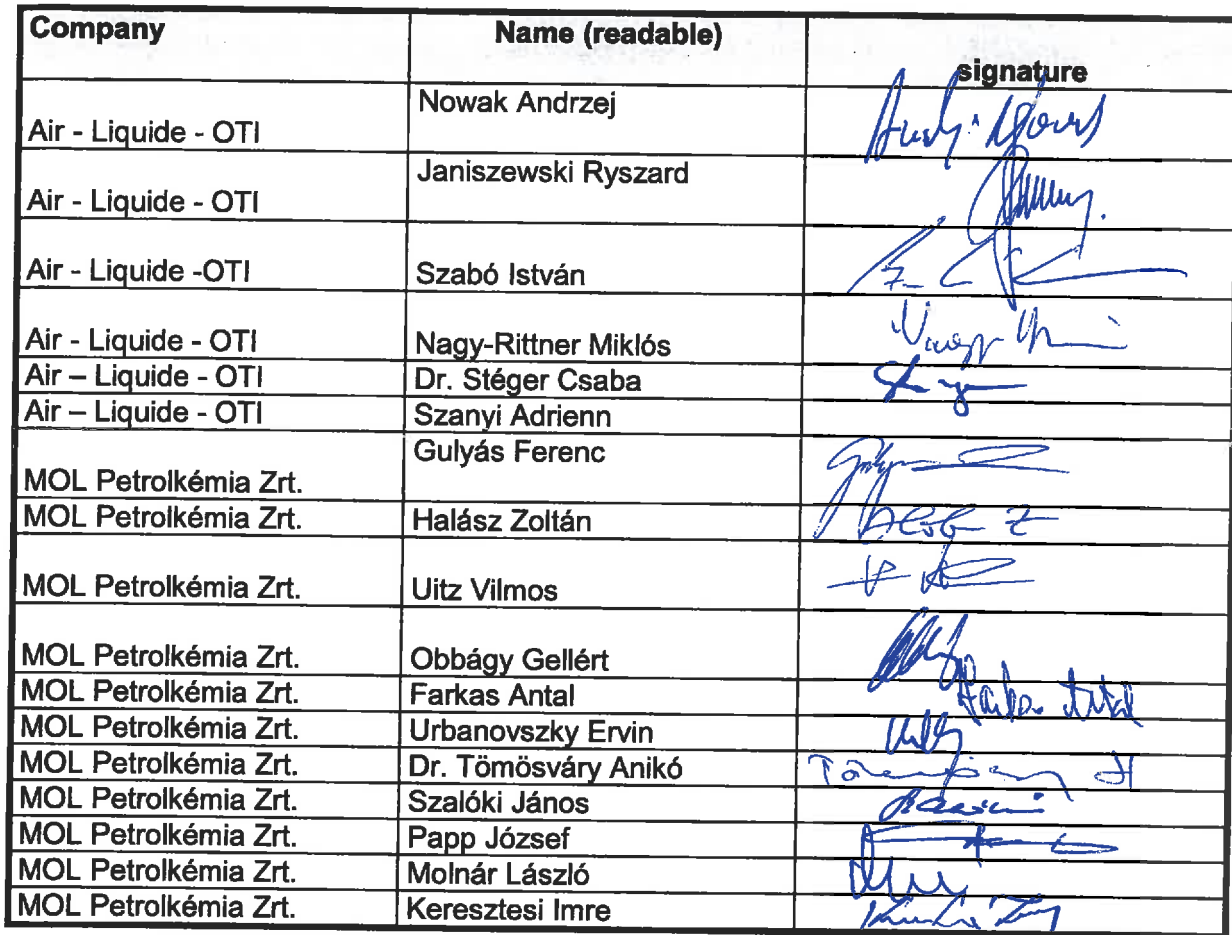 Company Name (readable) signature
Air - Liquide - OTI Nowak Andrzej
Air - Liquide - OTI Janiszewski Ryszard
Air - Liquide -OTI Szabó István
Air - Liquide - OTI Nagy-Rittner Miklós
Air – Liquide - OTI Dr. Stéger Csaba
Air – Liquide - OTI Szanyi Adrienn
MOL Petrolkémia Zrt. Gulyás Ferenc
MOL Petrolkémia Zrt. Halász Zoltán
MOL Petrolkémia Zrt. Uitz Vilmos
MOL Petrolkémia Zrt. Obbágy Gellért
MOL Petrolkémia Zrt. Farkas Antal Farkas Antal
MOL Petrolkémia Zrt. Urbanovszky Ervin
MOL Petrolkémia Zrt. Dr. Tömösváry Anikó
MOL Petrolkémia Zrt. Szalóki János
MOL Petrolkémia Zrt. Papp József
MOL Petrolkémia Zrt. Molnár László
MOL Petrolkémia Zrt. Keresztesi Imre